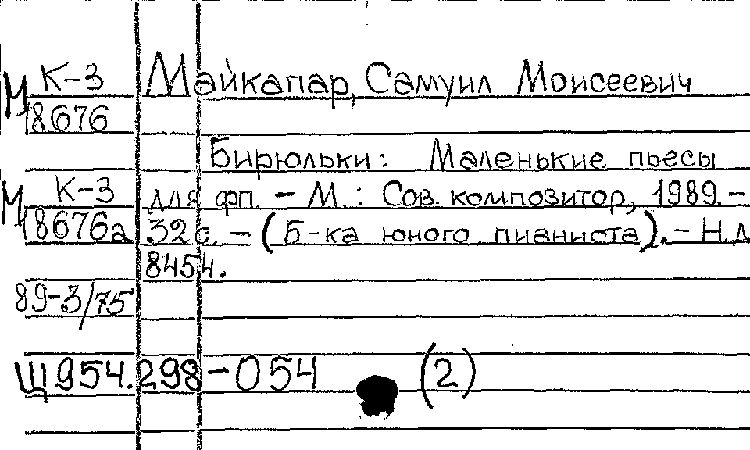 М К-3 Майкапар, Самуил Моисеевич
18676
Бирюльки: Маленькие пьесы
М К-3 для фп. - М.: Сов. композитор, 1989.-
18676а 32с. - (Б-ка юного пианиста). - Н.д.
8454.
89-3/75
Щ954.298-054 (2)